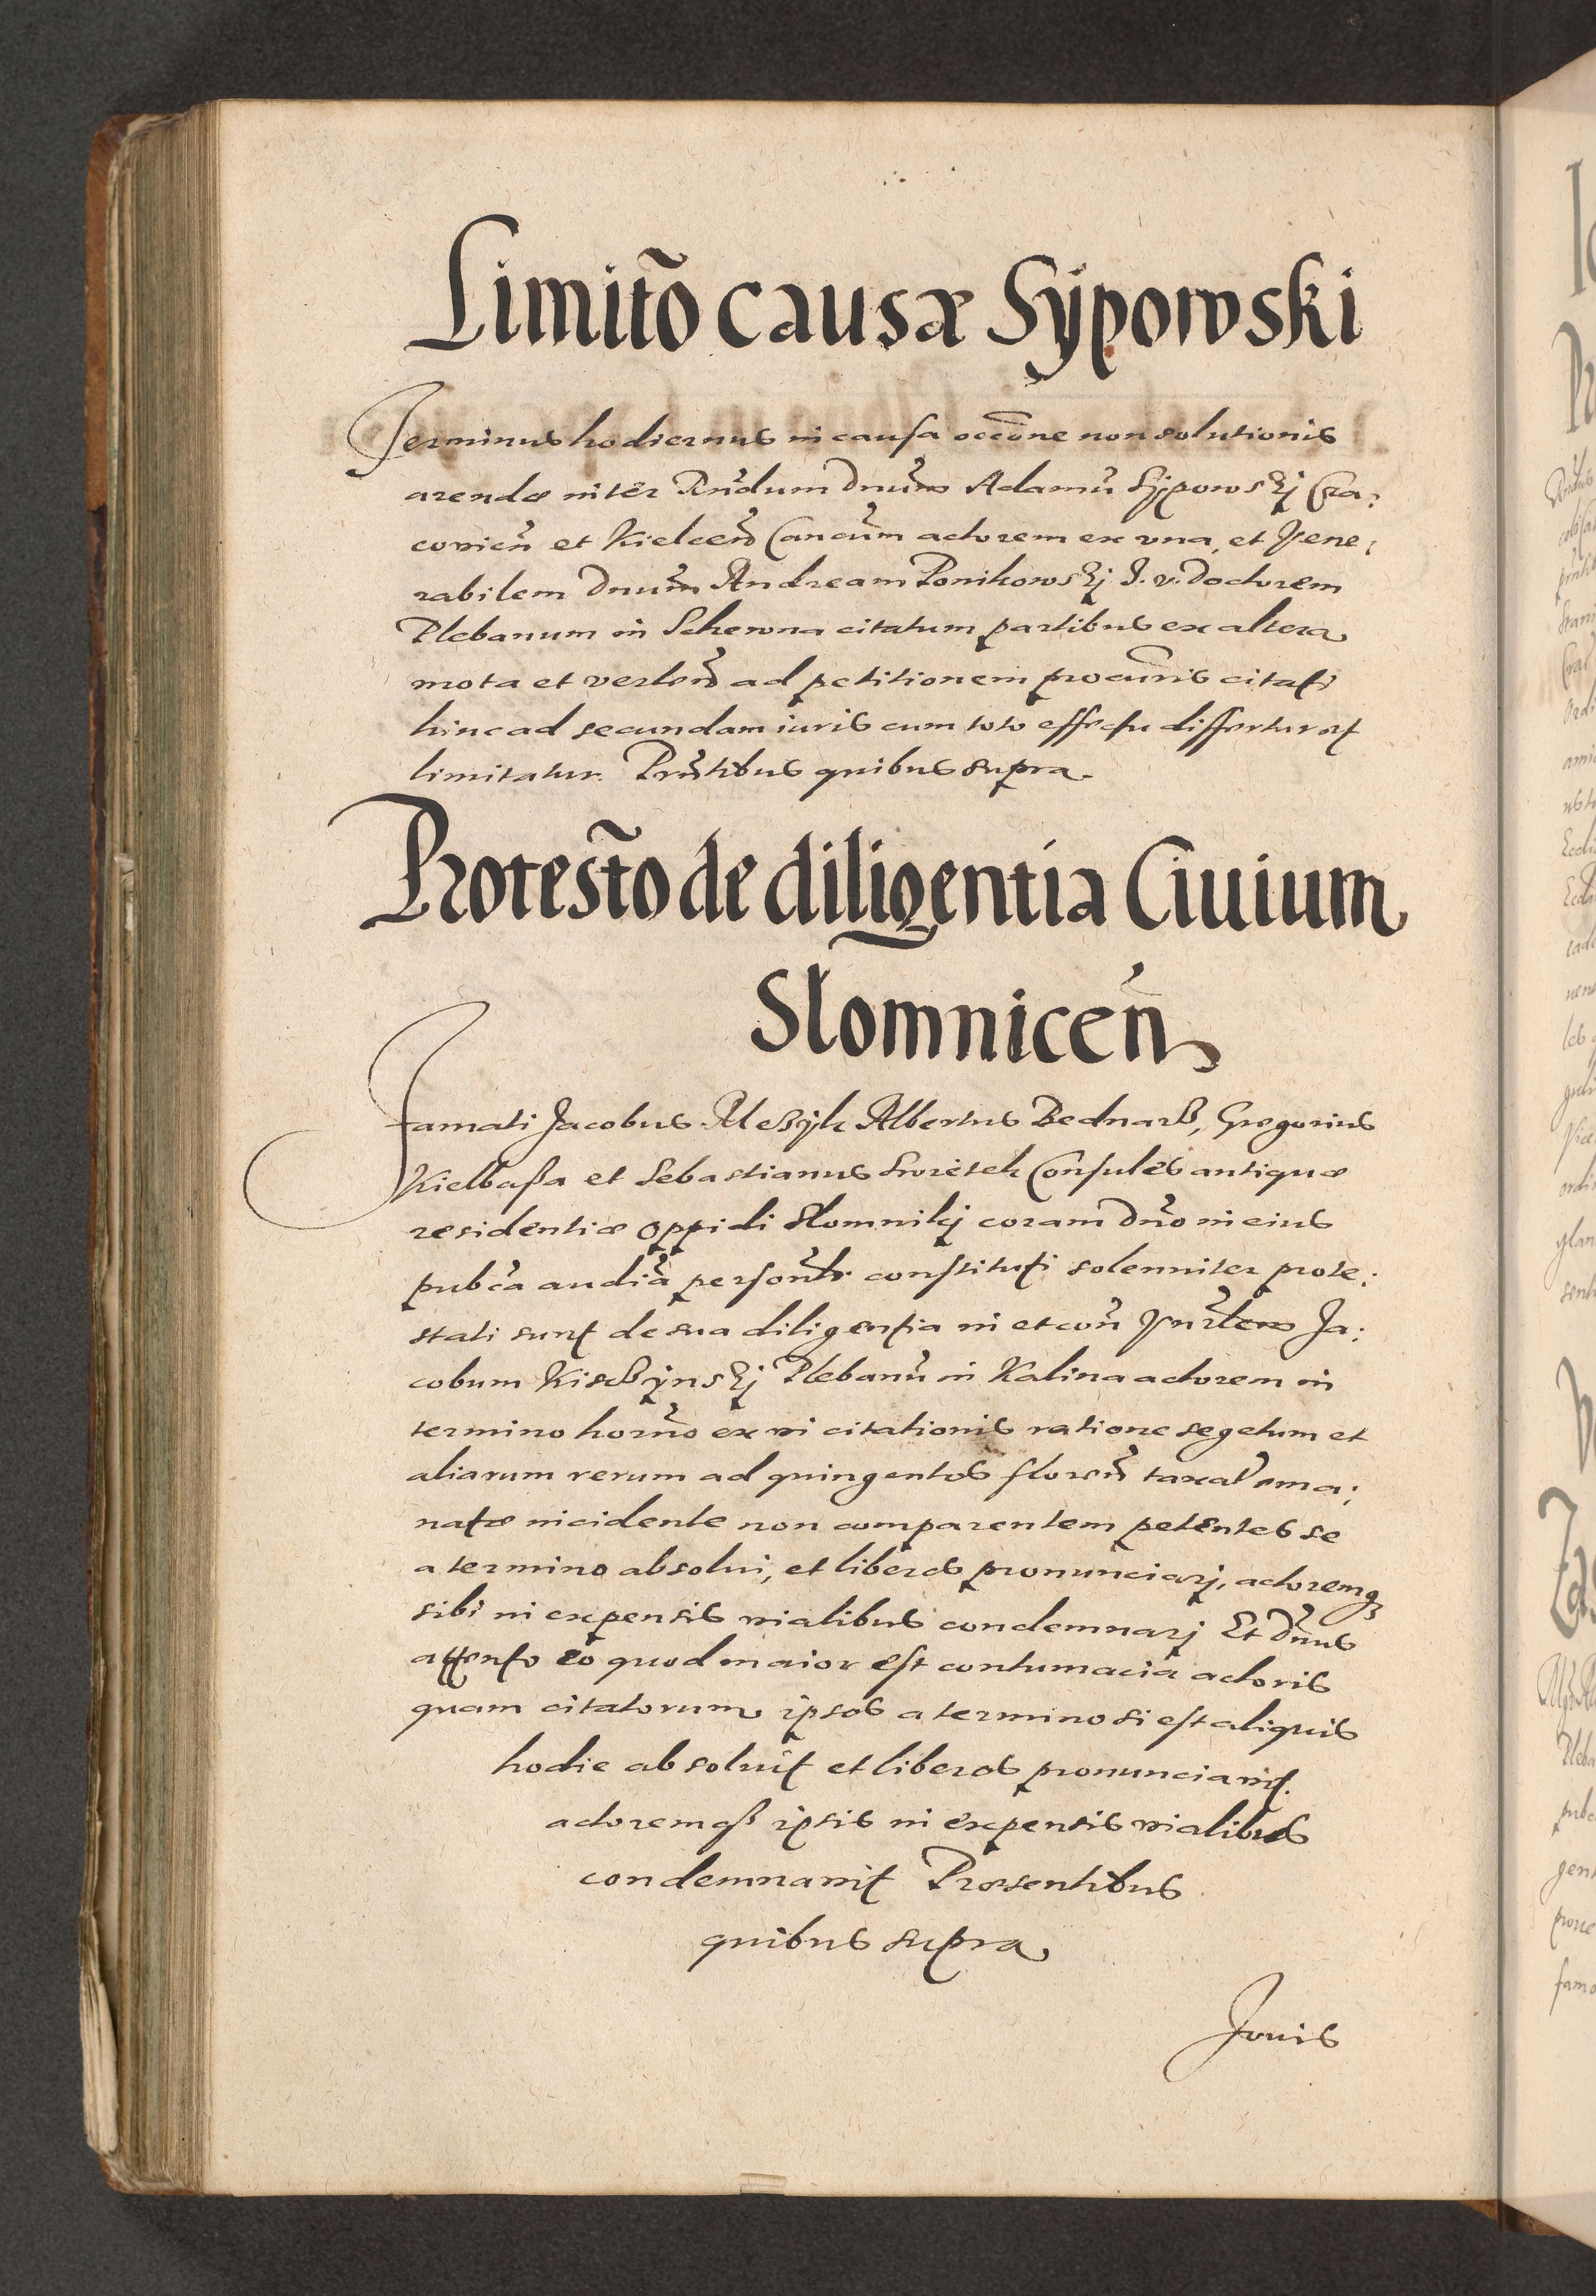 Limitõ causæ Sÿpowski
Terminus hodiernus in causa occõne non solutionis
arendæ inter Rñdum Dnũm Adamũ Sÿpowskj Cra:
covien̄ et Kielcen̄ Cancũm actorem ex vna, et Vene:
rabilem Dnũm Andream Ponikowskj I. v. Doctorem
Plebanum in Schewna citatum partibus ex altera
mota et verten̄ ad petitionem procuris̄ citati
hinc ad secundam iuris cum toto effectu differtur et
limitatur. Prñtibus quibus supra.
Protestõ de diligentia Ciuium
Slomnicen̄
Famati Jacobus Mesÿk Albertus Bednarz, Gregorius
Kielbassa et Sebastianus Swietek Consules antiquæ
residentiæ oppidi Slomnikj coram Dño in eius
pubc̄a audiā personłr constituti solenniter prote:
stati sunt de sua diligentia in et con̄ Vnr̄lem Ja:
cobum Kisczÿnskj Plebanū in Kalina actorem in
termino horño ex vi citationis ratione segetum et
aliarum rerum ad quingentos floren̄ taxat̄ ema:
natæ incidente non comparentem petentes se
a termino absolui, et liberos pronunciarj, actoremq₃
sibi in expensis vialibus condemnarj Et Dñus
attento eo quod maior est contumacia actoris
quam citatorum ipsos a termino si est aliquis
hodie absoluit et liberos pronunciavit.
actoremqß ipsis in expensis vialibus
condemnavit Præsentibus
quibus supra
Jouis